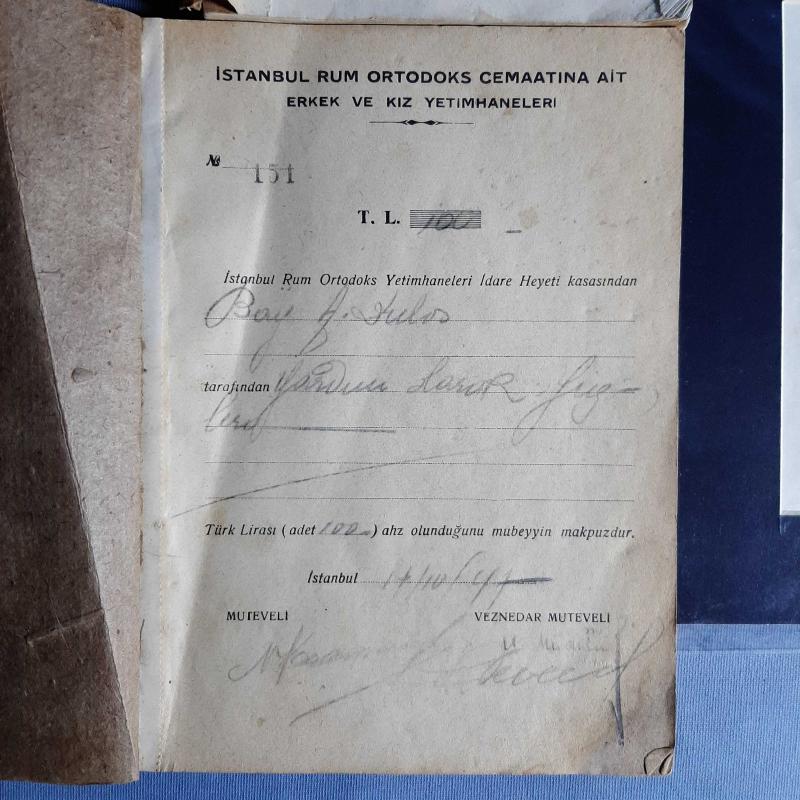 İSTANBUL RUM ORTODOKS CEMAATINA AİT
ERKEK VE KIZ YETIMHANELERİ
№ 151
T. L. 100 –
İstanbul Rum Ortodoks Yetimhaneleri İdare Heyeti kasasından
Bay
tarafından
Türk Lirası (adet 100) ahz olunduğunu mubeyyin makpuzdur.
İstanbul
MUTEVELİ VEZNEDAR MUTEVELİ